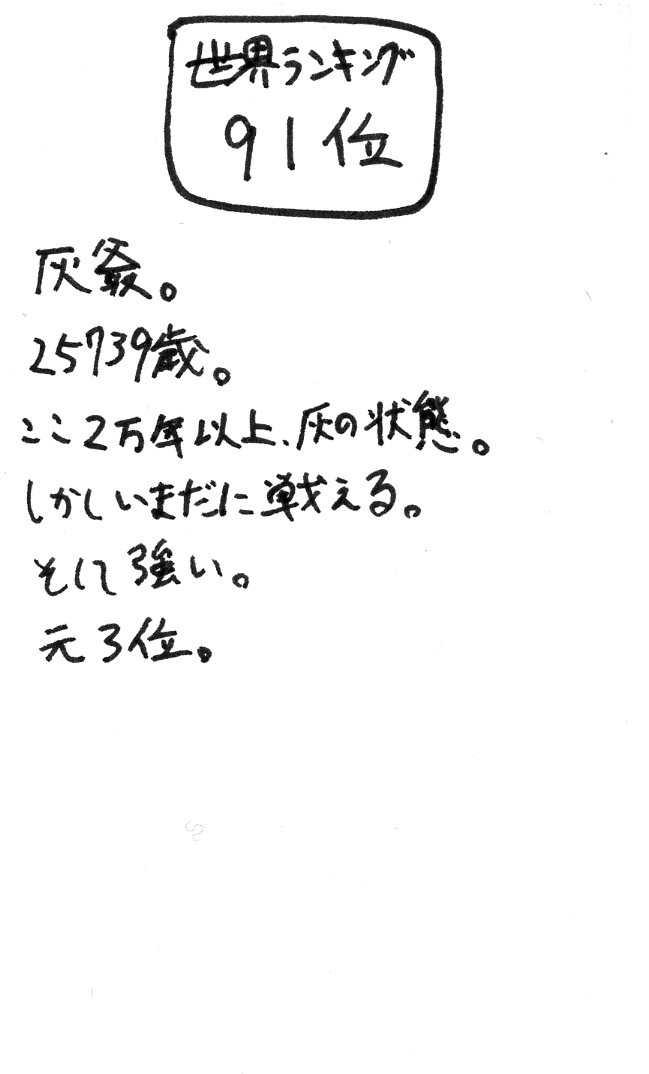 世界ランキング
91位
灰爺。
25739歳。
ここ2万年以上、灰の状態。
しかしいまだに戦える。
そして強い。
元3位。